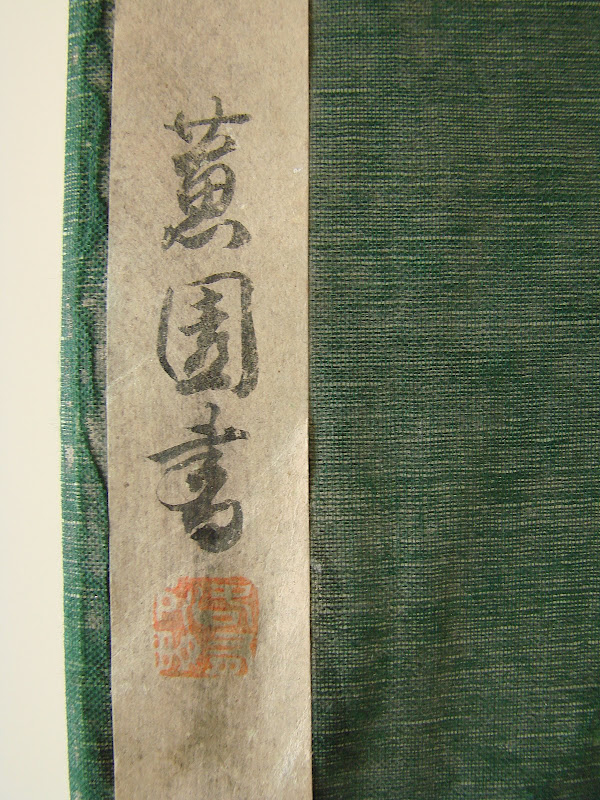 蕙園書